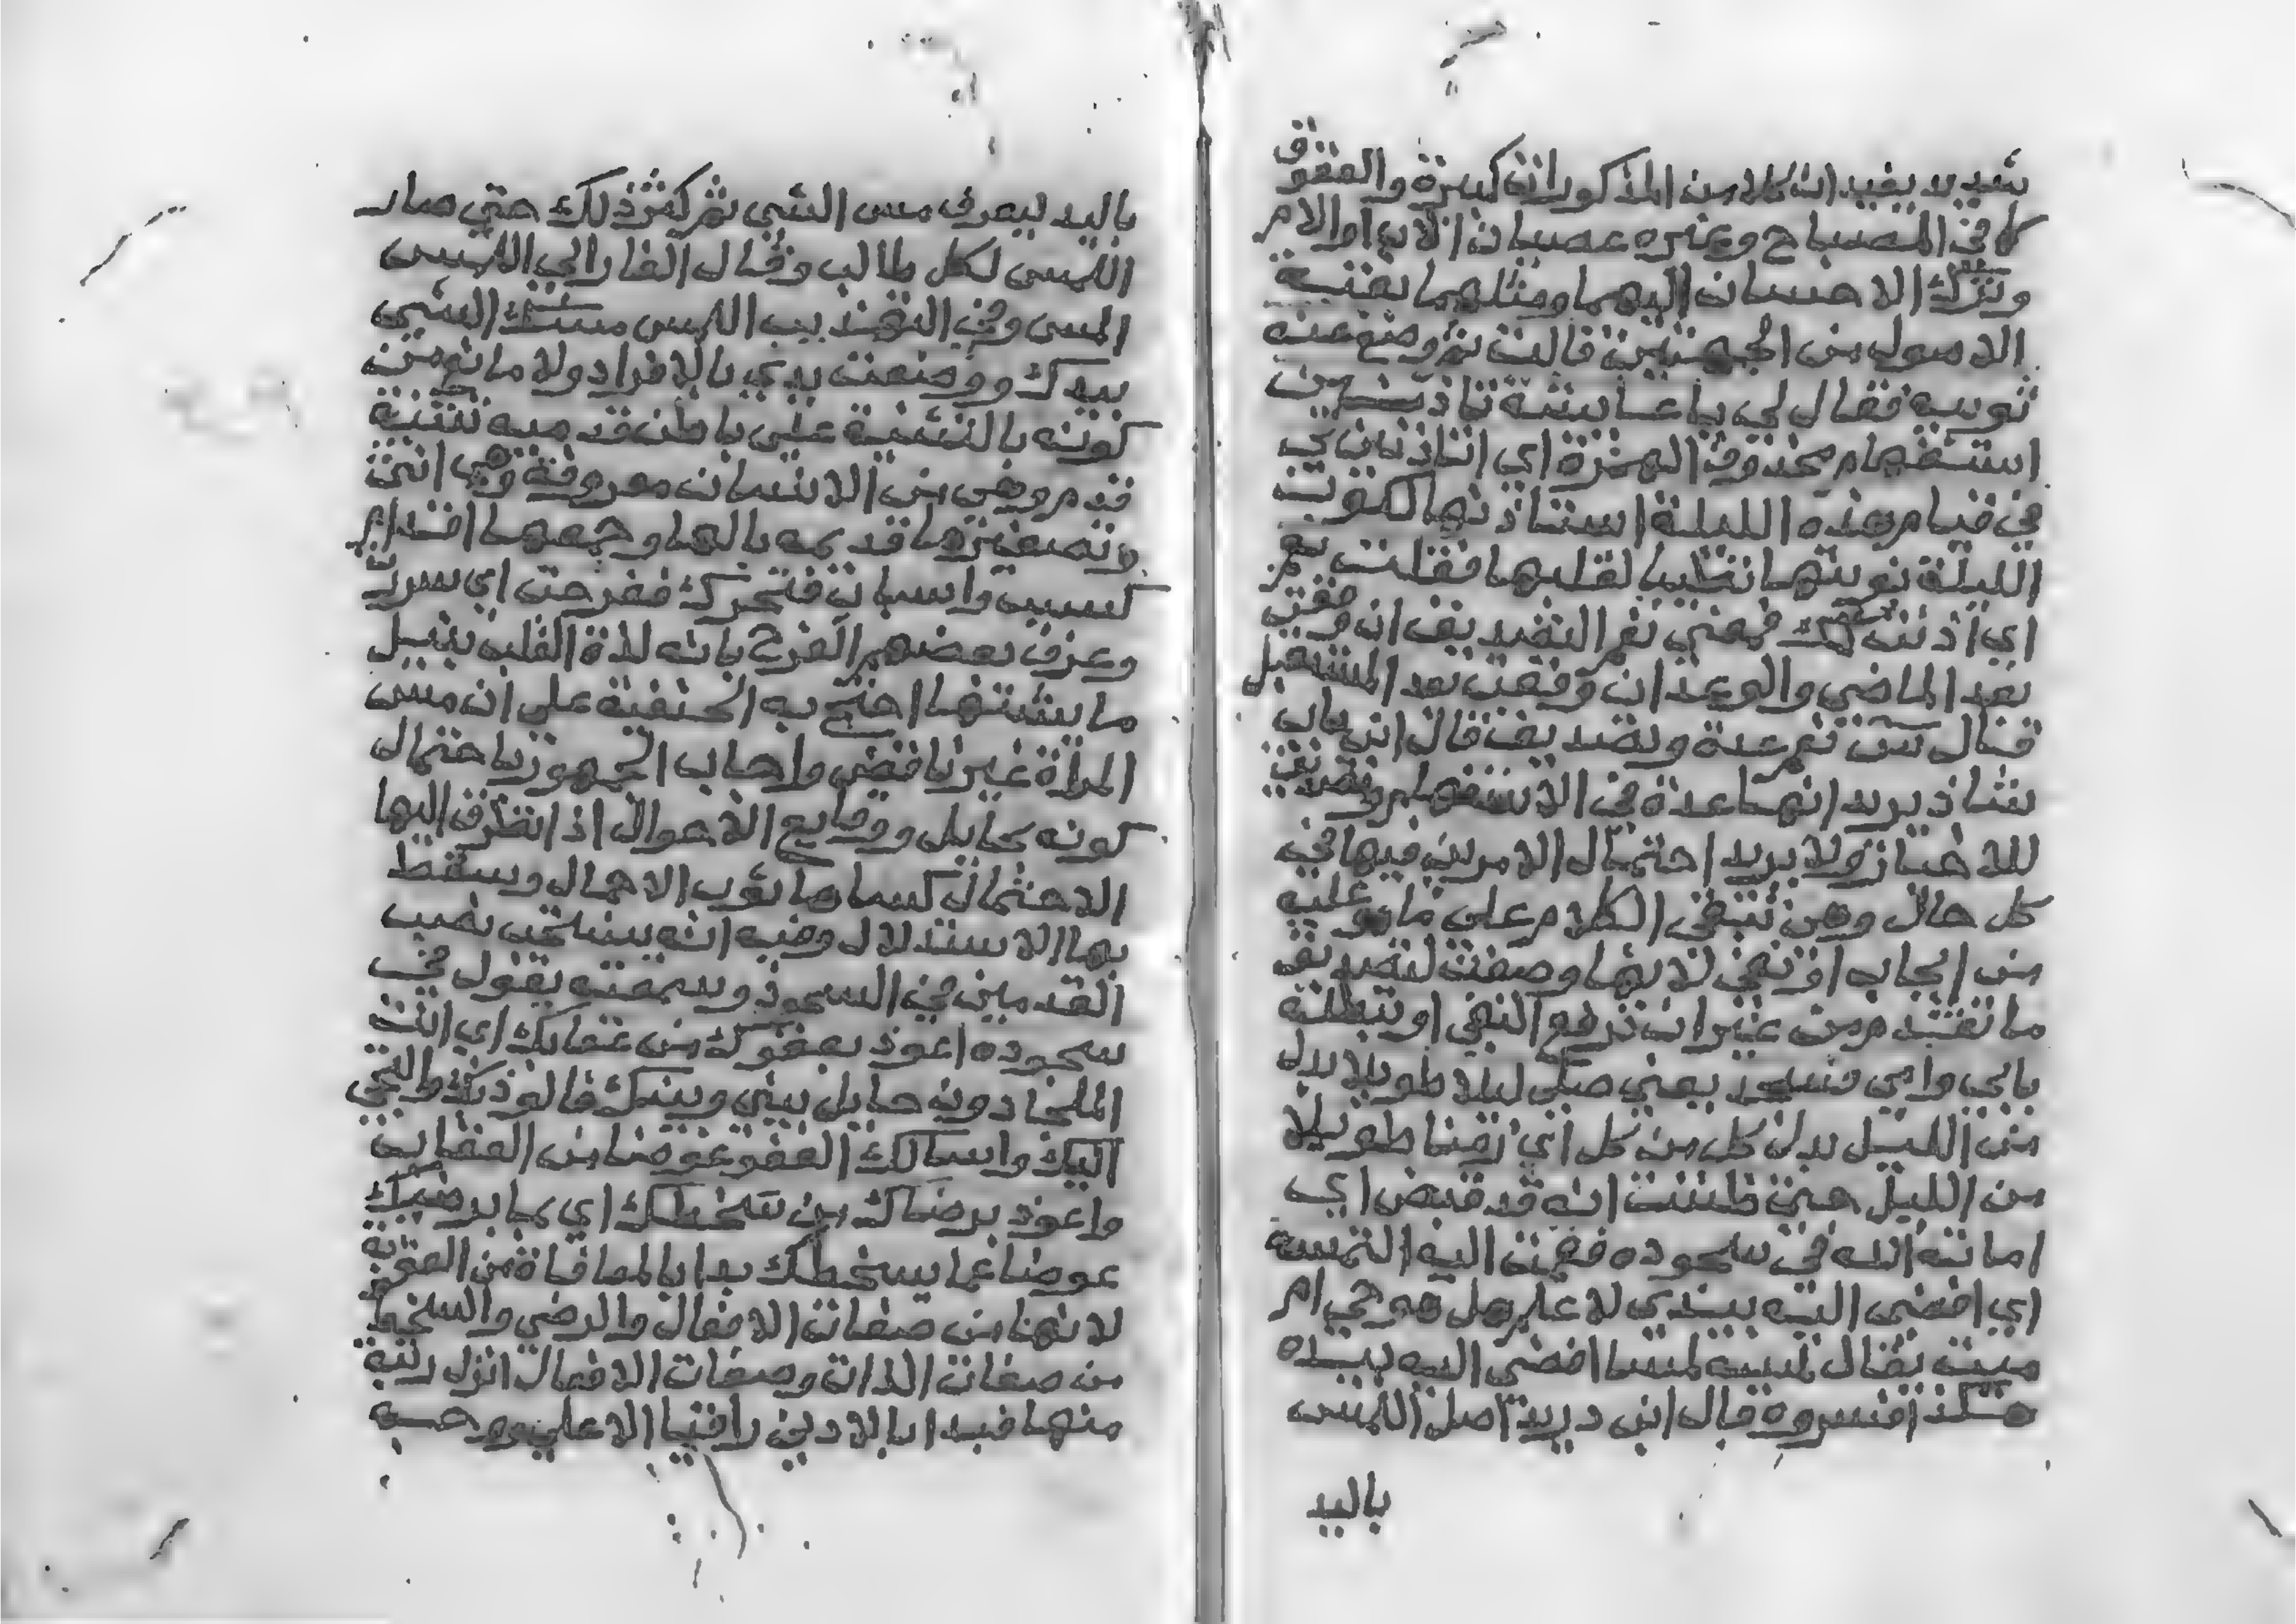 شديد يفيد ان كلا من المذكورات كبيرة والعقوق
كما في المصباح وغيره عصيان الاب او الام
وترك الاحسان اليهما ومثلهما بقية
الاصول من الجهتين قالت ثم وضع عنه
ثوبيه فقال لي يا عايشة تاذنين
استفهام محذوف الهمزة اي اتاذنين لي
في قيام هذه الليلة استاذنها لكون
الليلة نوبتها تطييبا لقلبها فقلت نعم
اي اذنت لك فمعنى نعم التصديق ان وقعت
بعد الماضي والوعد ان وقعت بعد المستقبل
قال س نعم عدة وتصديق قال ابن باب
شاذ يريد انها عدة في الاستفهام وتصديق
للاخبار ولا يريد احتمال الامرين فيها في
كل حال وهي تبقي الكلام على ما هو عليه
من ايجاب او نفي لانها وضعت لتصديق
ما تقدم من غير ان ترفع النفي او تبطله
بابي وامي فسجد يعني صلى ليلا طويلا بدل
من الليل بدل كل من كل اي زمنا طويلا
من الليل حتى ظننت انه قد قبض اي
اماته الله في سجوده فقمت اليه التمسه
اي افضي اليه بيدي لاعلم هل هو حي ام
ميت يقال لمسه لمسا افضى اليه بيده
هكذا فسروه قال ابن دريد اصل اللمس
باليد
باليد ليعرف مس الشي ثم كثر ذلك حتى صار
اللمس لكل طالب وقال الفارابي اللمس
المس وفي التهذيب اللمس مسك الشي
بيدك ووضعت يدي بالافراد ولا مانع من
كونه بالتثنية على باطن قدميه تثنية
قدم وهي من الانسان معروفة وهي انثى
وتصغيرها قديمة بالها وجمعها اقدام
كسبب واسباب فتحرك ففرحت اي سررت
وعرف بعضهم الفرح بانه لذة القلب بنيل
ما يشتهي احتج به الحنفية على ان مس
المراة غير ناقض واجاب الجمهور باحتمال
كونه بحايل ووقايع الاحوال اذا تطرق اليها
الاحتمال كساها ثوب الاجمال وسقط
بها الاستدلال وفيه انه يستحب نصب
القدمين في السجود وسمعته يقول في
سجوده اعوذ بعفوك من عقابك اي انت
الملجا دونه حايل بيني وبينك فالوذ بك والتجي
اليك واسالك العفو عوضا من العقاب
واعوذ برضاك من سخطك اي بما يرضيك
عوضا عما يسخطك بدا بالمعافاة من العقوبة
لانها من صفات الافعال والرضي والسخط
من صفات الذات وصفات الافعال انزل رتبة
منها فبدا بالادنى راقيا الاعلى